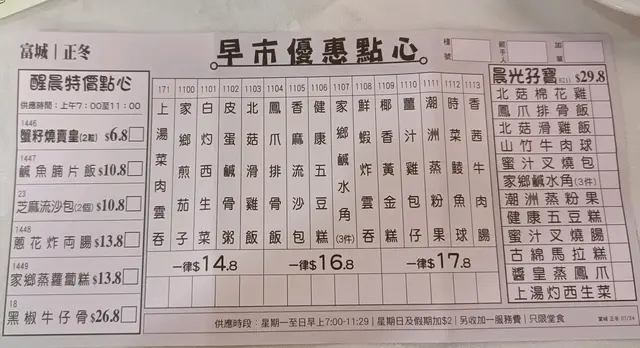 富城｜正冬
早市優惠點心
檯號
經手人
加單
醒晨特價點心
供應時間：上午7：00至11：00
1446
蟹籽燒賣皇(2粒) $6.8
1447
鹹魚腩片飯 $10.8
23
芝麻流沙包(2個) $10.8
1448
蔥花炸両腸 $13.8
1449
家鄉蒸蘿蔔糕 $13.8
18
黑椒牛仔骨 $26.8
171 上湯菜肉雲吞
1100 家鄉煎茄子
1101 白灼西生菜
1102 皮蛋鹹骨粥
1103 北菇滑雞飯
1104 鳳爪排骨飯
1105 香麻流沙包
1106 健康五豆糕
1107 家鄉鹹水角(3件)
1108 鮮蝦炸雲吞
1109 椰香黃金糕
1110 薑汁雞包仔
1111 潮洲蒸粉果
1112 時菜鯪魚球
1113 香茜牛肉腸
一律$14.8
一律$16.8
一律$17.8
晨光孖寶 (021) $29.8
北菇棉花雞
鳳爪排骨飯
北菇滑雞飯
山竹牛肉球
蜜汁叉燒包
家鄉鹹水角(3件)
潮洲蒸粉果
健康五豆糕
蜜汁叉燒腸
古綿馬拉糕
醬皇蒸鳳爪
上湯灼西生菜
供應時段：星期一至日早上7:00-11:29｜星期日及假期加$2｜另收加一服務費｜只限堂食
富城 正冬 07/24